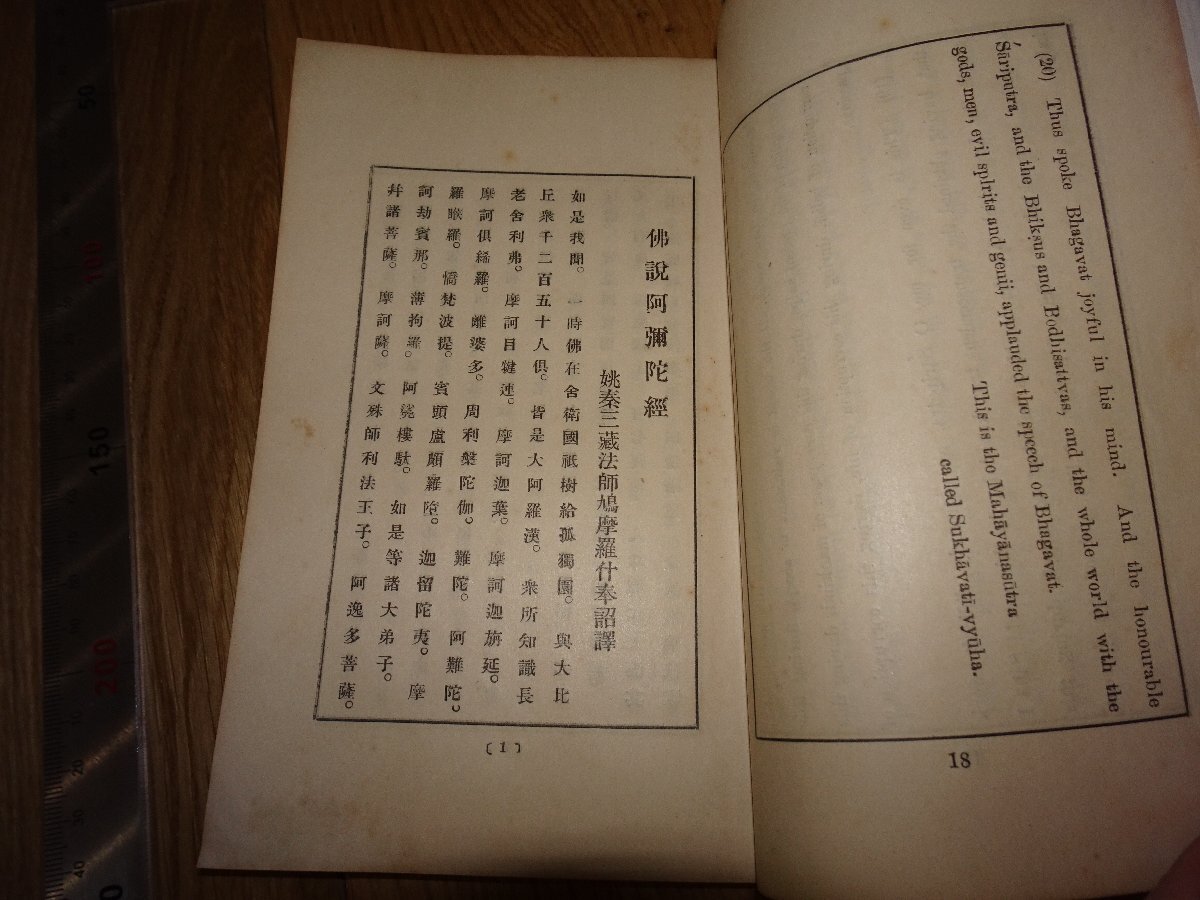 佛說阿彌陀經
姚秦三藏法師鳩摩羅什奉詔譯
如是我聞。一時佛在舍衛國祇樹給孤獨園。與大比
丘衆千二百五十人俱。皆是大阿羅漢。衆所知識長
老舍利弗。摩訶目犍連。摩訶迦葉。摩訶迦旃延。
摩訶俱絺羅。離婆多。周利槃陀伽。難陀。阿難陀。
羅睺羅。憍梵波提。賓頭盧頗羅墮。迦留陀夷。摩
訶劫賓那。薄拘羅。阿㝹樓馱。如是等諸大弟子。
幷諸菩薩。摩訶薩。文殊師利法王子。阿逸多菩薩。
(1)
(20) Thus spoke Bhagavat joyful in his mind. And the honourable
Śāriputra, and the Bhikṣus and Bodhisattvas, and the whole world with the
gods, men, evil spirits and genii, applauded the speech of Bhagavat.
This is the Mahāyānasūtra
called Sukhāvatī-vyūha.
18
50
100
150
200
20
30
40